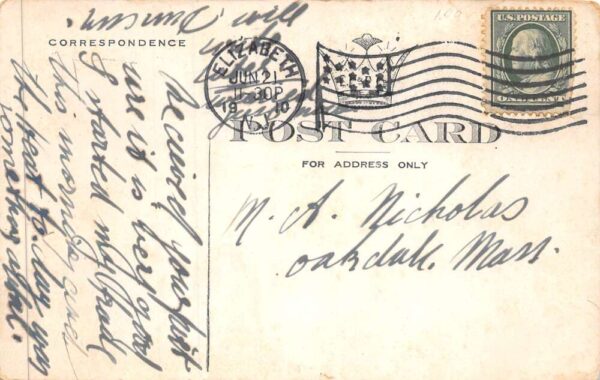 CORRESPONDENCE
ELIZABETH
JUN 21
30P
1910
N.J.
U.S. POSTAGE
ONE CENT
POST CARD
FOR ADDRESS ONLY
M. A. Nicholas
Oakdale. Mass.
Received your
ure it is very good
I started my trade
this morning and
the heat to-day was
something awful.
will